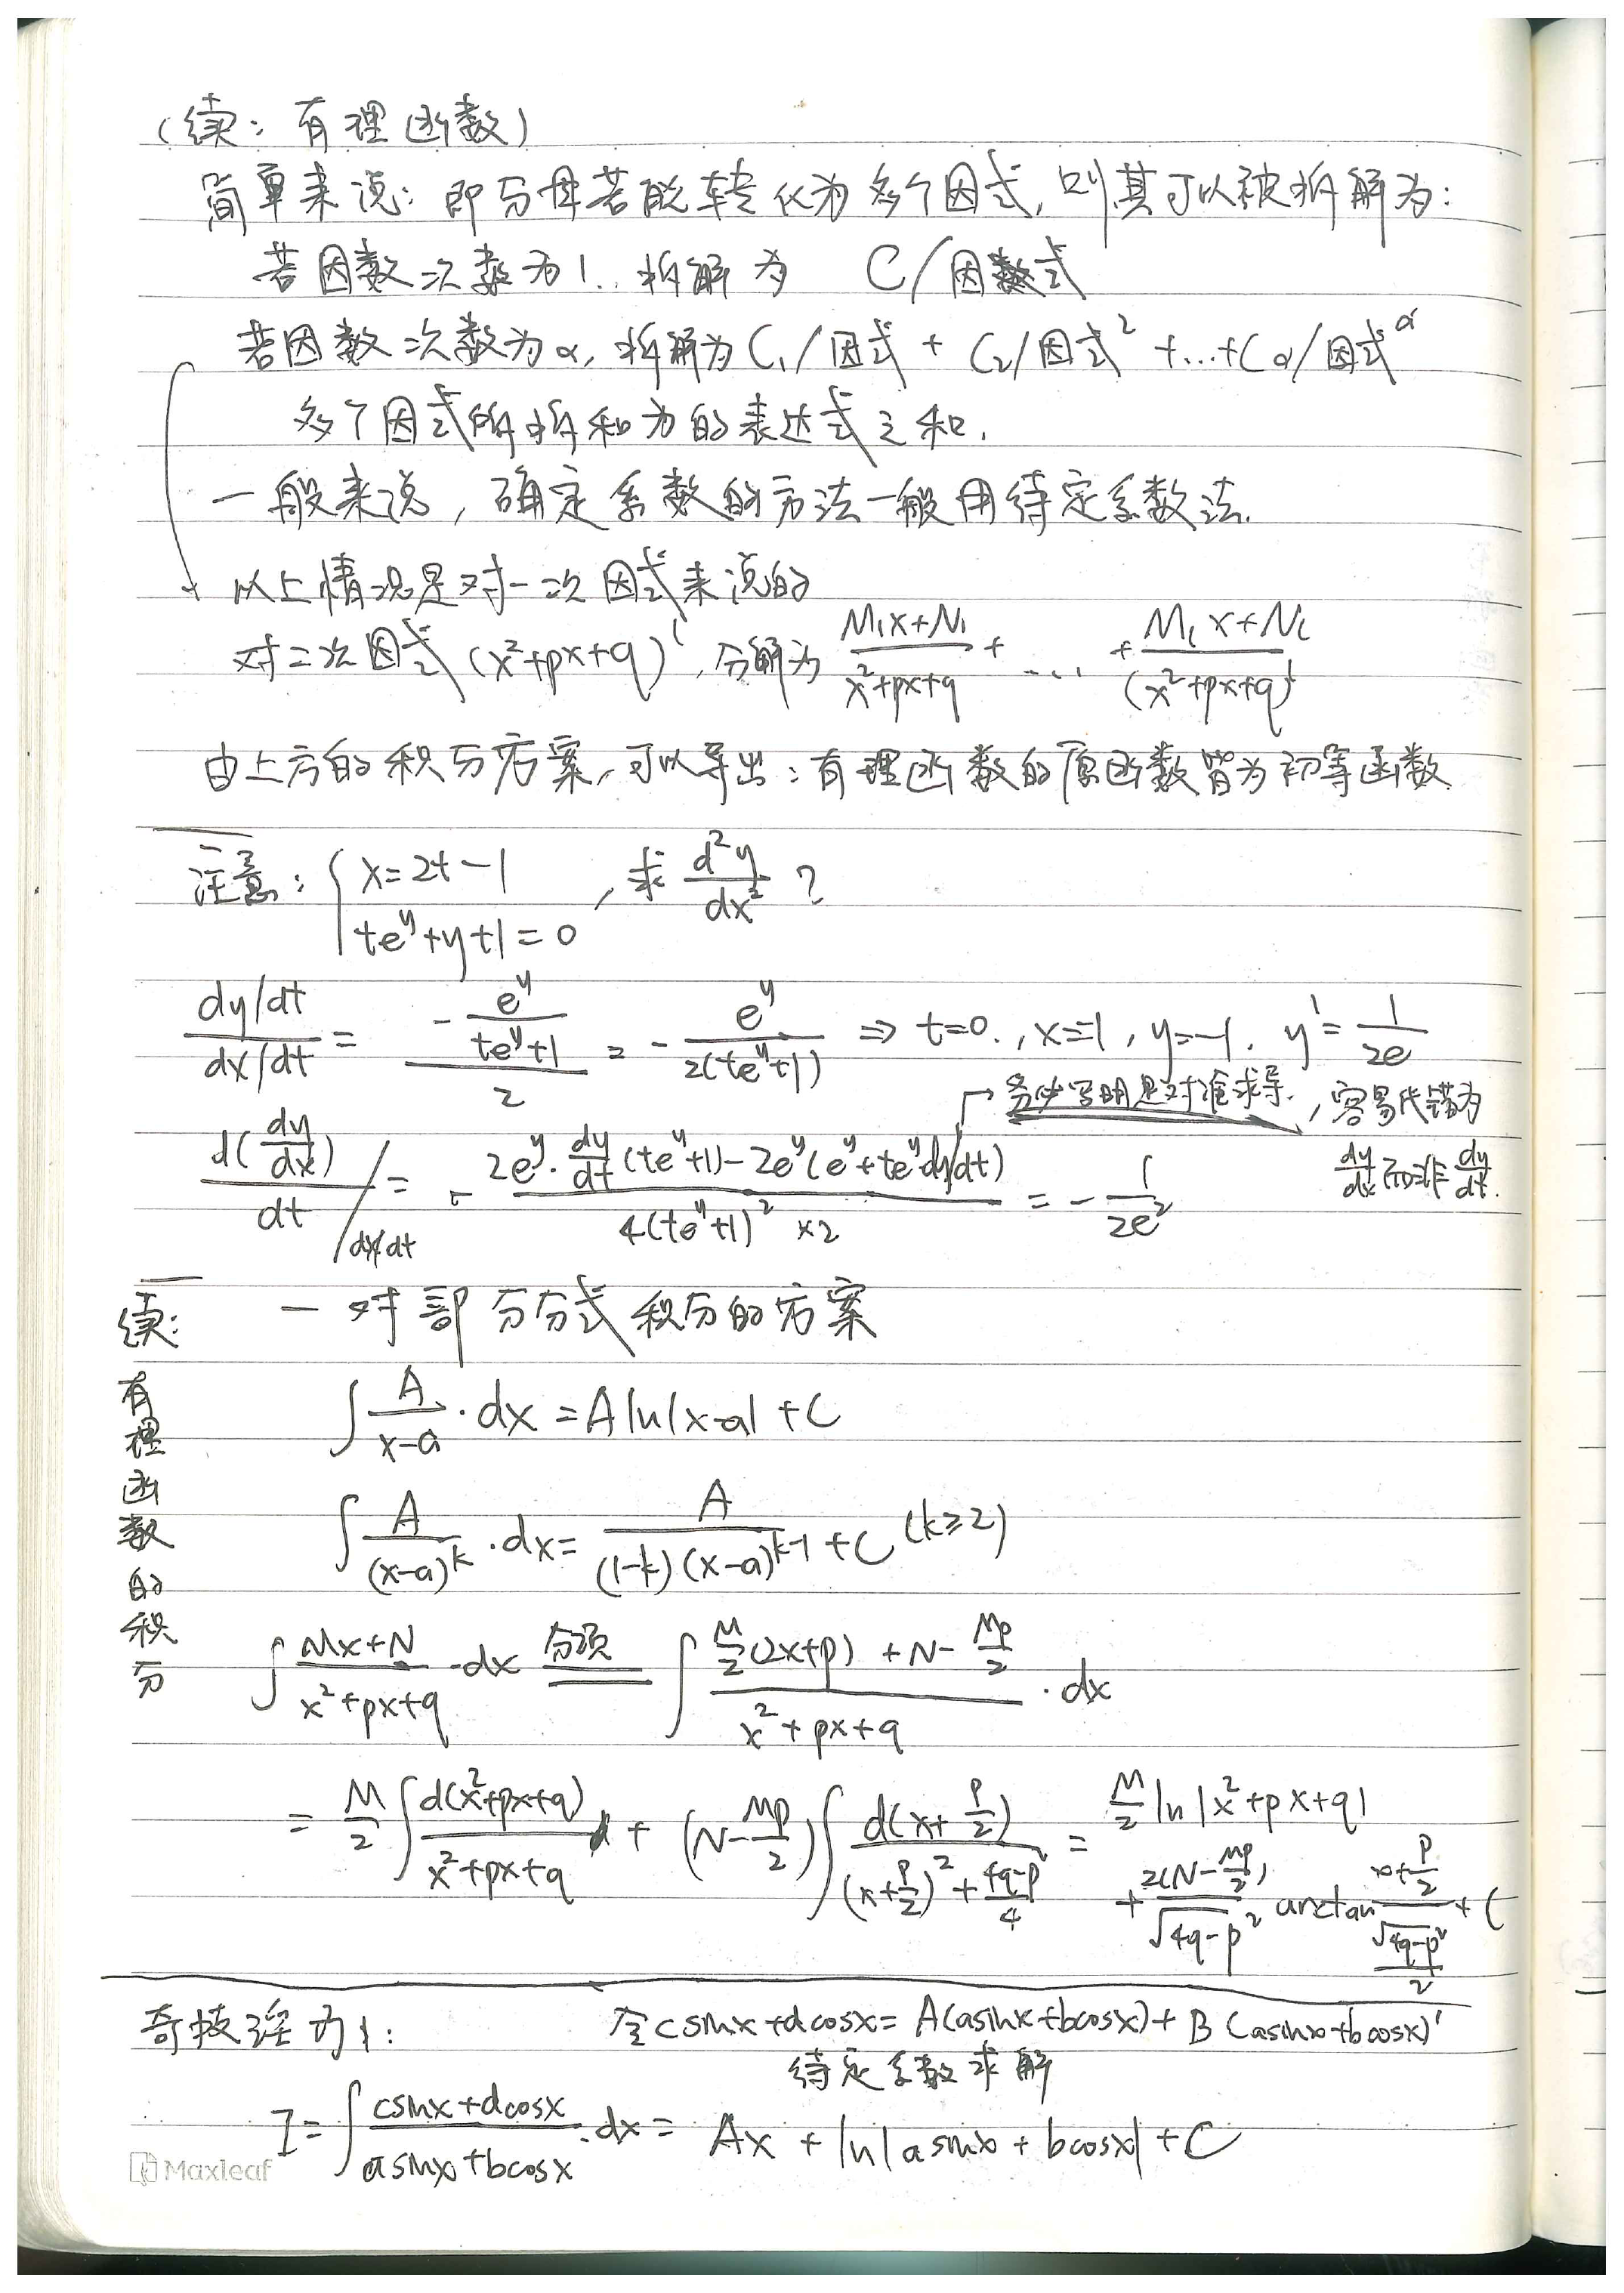 （续：有理函数）
简单来说：即分母若能转化为多个因式，则其可以被拆解为：
若因数次数为1，拆解为 C/因式
若因数次数为α，拆解为 C₁/因式 + C₂/因式² + … + Cα/因式^α
多个因式所拆和为的表达式之和.
一般来说，确定系数的方法一般用待定系数法.
以上情况是对一次因式来说的
对二次因式 (x²+px+q)^l，分解为 (M₁x+N₁)/(x²+px+q) + … + (M_l x+N_l)/(x²+px+q)^l
由上方的积分方案，可以导出：有理函数的原函数皆为初等函数
注意：{ x=2t-1
te^y+y+1=0 ，求 d²y/dx² ?
(dy/dt)/(dx/dt) = (-e^y/(te^y+1))/2 = -e^y/(2(te^y+1)) ⇒ t=0., x=-1, y=-1. y'=1/(2e)
务必写明是对谁求导，容易代错为 dy/dx 而非 dy/dt.
d(dy/dx)/dt / dx/dt = -(2e^y·dy/dt(te^y+1)-2e^y(e^y+te^y dy/dt))/(4(te^y+1)²×2) = -1/(2e²)
续：有理函数的积分
一 对部分分式积分的方案
∫A/(x-a)·dx = A ln|x-a|+C
∫A/(x-a)^k·dx = A/((1-k)(x-a)^(k-1))+C (k≥2)
∫(Mx+N)/(x²+px+q)·dx 分项= ∫(M/2(2x+p)+N-Mp/2)/(x²+px+q)·dx
= M/2∫d(x²+px+q)/(x²+px+q) + (N-Mp/2)∫d(x+p/2)/((x+p/2)²+(4q-p²)/4) = M/2 ln|x²+px+q|
+ 2(N-Mp/2)/√(4q-p²) arctan (x+p/2)/(√(4q-p²)/2) + C
奇技淫巧1： 令csinx+dcosx=A(asinx+bcosx)+B(asinx+bcosx)'
待定系数求解
I=∫(csinx+dcosx)/(asinx+bcosx)·dx = Ax+ln|asinx+bcosx|+C
Maxleaf